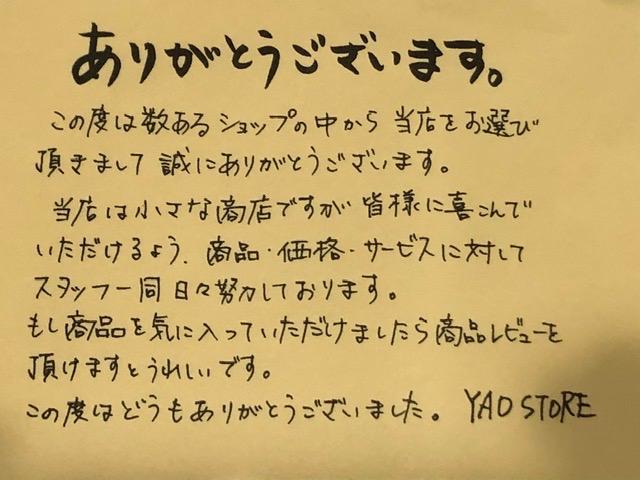 ありがとうございます。
この度は数あるショップの中から当店をお選び
頂きまして誠にありがとうございます。
当店は小さな商店ですが皆様に喜こんで
いただけるよう、商品・価格・サービスに対して
スタッフ一同日々努力しております。
もし商品を気に入っていただけましたら商品レビューを
頂けますとうれしいです。
この度はどうもありがとうございました。 YAO STORE